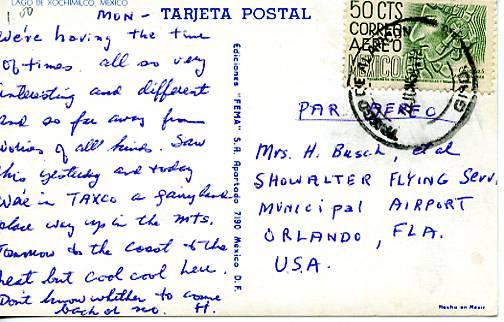 LAGO DE XOCHIMILCO, MEXICO
1 00
MON -
TARJETA POSTAL
We're having the time
of times. all so very
interesting and different
and so far away from
worries of all kinds. Saw
this yesterday and today
We're in TAXCO a fairyland
place way up in the mts.
Tomorrow to the coast & the
heat but cool cool here.
Don't know whether to come
back or no. H.
Ediciones "FEMA" S.A. Apartado 7190 Mexico D.F.
50 CTS
CORREO
AEREO
MEXICO
PAR AEREO
Mrs. H. Busch, et al
SHOWALTER FLYING Serv.
Municipal AIRPORT
ORLANDO, FLA.
U.S.A.
Hecho en Mexico